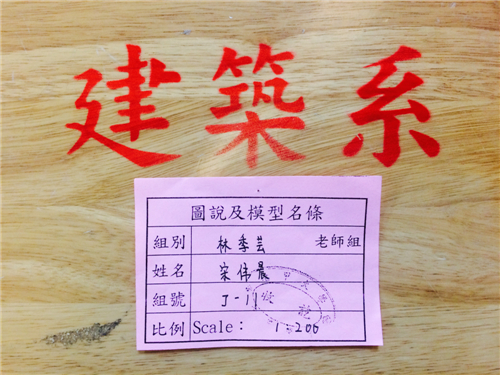 建築系
圖說及模型名條
組別 林季芸 老師組
姓名 宋伟晨
組號 J-11
比例 Scale： 1:200